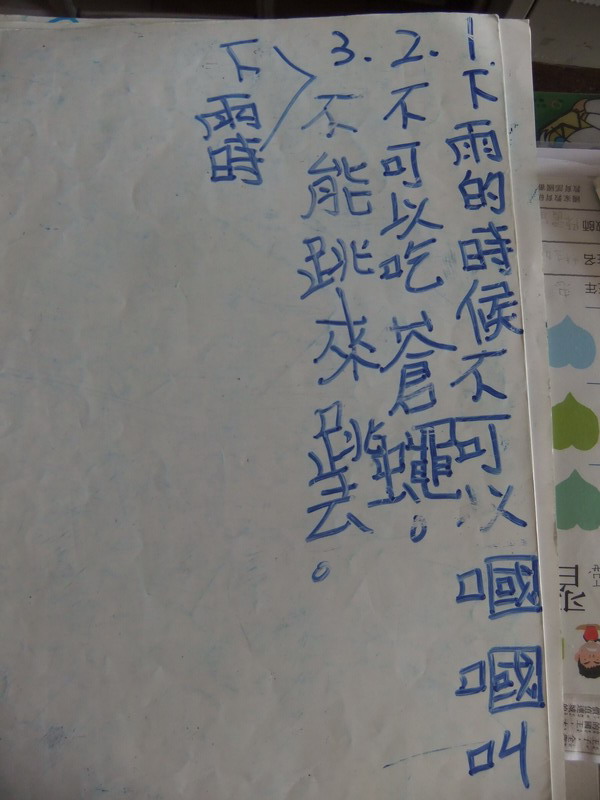 1.下雨的時候不可以嘓嘓叫
2.不可以吃蒼蠅。
3.不能跳來跳去。
下雨時